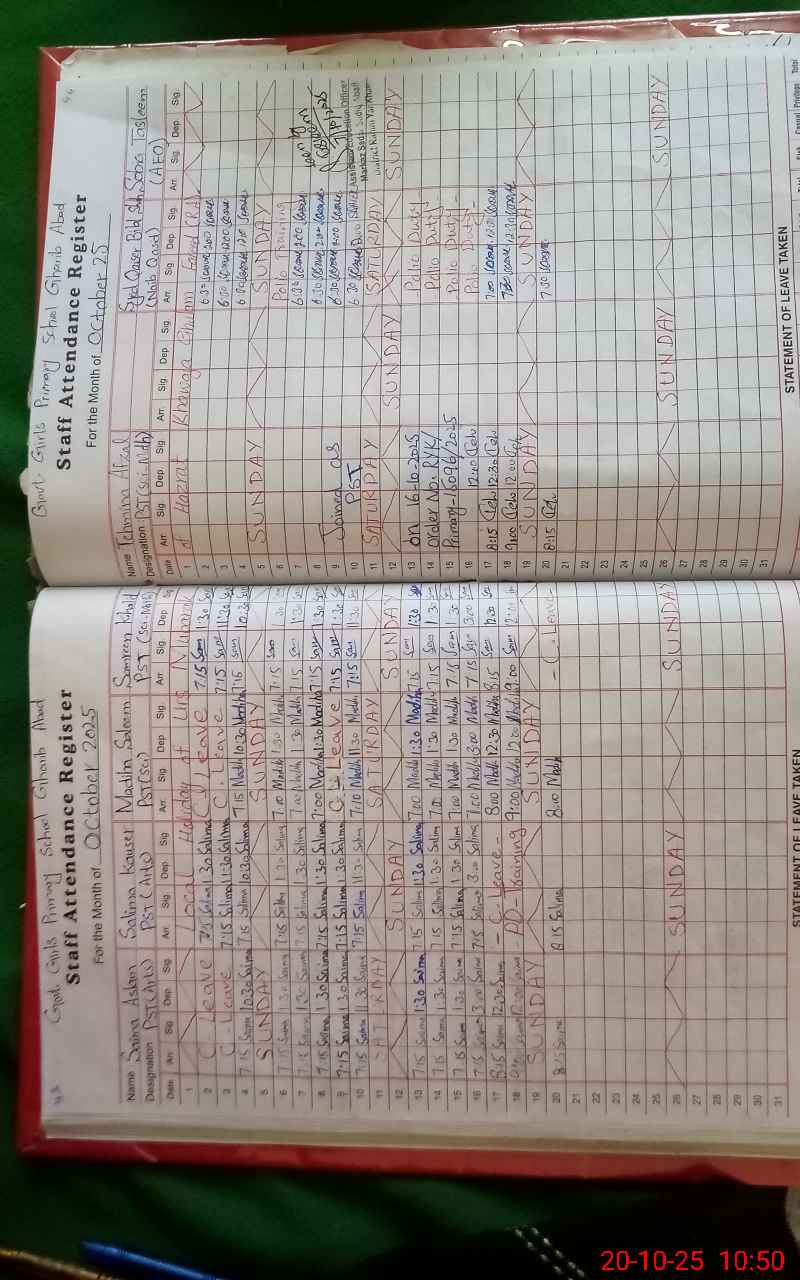 43
Govt. Girls Primary School Gharib Abad
Staff Attendance Register
For the Month of October 2025
Name Saima Aslam Salima Kauser Madiha Saleem Samreen Khalid
Designation PST(Arts) PST(Arts) PST(sci) PST(Sci-Math)
Date Arr. Sig. Dep. Sig. Arr. Sig. Dep. Sig. Arr. Sig. Dep. Sig. Arr. Sig. Dep. Sig.
1 Local Holiday of Urs Mubarak
2 C. Leave 7:15 Salima 1:30 Salima C. Leave 7:15 Sam 1:30 Sam
3 C. Leave 7:15 Salima 11:30 Salima C. Leave 7:15 Sam 11:30 Sam
4 7:15 Saima 10:30 Saima 7:15 Salima 10:30 Salima 7:15 Madiha 10:30 Madiha 7:15 Sam 10:30 Sam
5 SUNDAY SUNDAY
6 7:15 Saima 1:30 Saima 7:15 Salima 1:30 Salima 7:00 Madiha 1:30 Madiha 7:15 Sam 1:30
7 7:15 Saima 1:30 Saima 7:15 Salima 1:30 Salima 7:00 Madiha 1:30 Madiha 7:15 Sam 1:30 Sam
8 7:15 Saima 1:30 Saima 7:15 Salima 1:30 Salima 7:00 Madiha 1:30 Madiha 7:15 Sam 1:30 Sam
9 7:15 Saima 1:30 Saima 7:15 Salima 1:30 Salima C. Leave 7:15 Sam 1:30 Sam
10 7:15 Saima 11:30 Saima 7:15 Salima 11:30 Salima 7:10 Madiha 11:30 Madiha 7:15 Sam 11:30 Sam
11 SATURDAY SATURDAY
12 SUNDAY SUNDAY
13 7:15 Saima 1:30 Saima 7:15 Salima 1:30 Salima 7:00 Madiha 1:30 Madiha 7:15 Sam 1:30 Sam
14 7:15 Saima 1:30 Saima 7:15 Salima 1:30 Salima 7:00 Madiha 1:30 Madiha 7:15 Sam 1:30 Sam
15 7:15 Saima 1:30 Saima 7:15 Salima 1:30 Salima 7:00 Madiha 1:30 Madiha 7:15 Sam 1:30 Sam
16 7:15 Saima 3:00 Saima 7:15 Salima 3:00 Salima 7:00 Madiha 3:00 Madiha 7:15 Sam 3:00 Sam
17 8:15 Saima 12:30 Saima - C. Leave - 8:00 Madiha 12:30 Madiha 8:15 Sam 12:30 Sam
18 9:00 Saima 12:00 Saima - AD-Training 9:00 Madiha 12:00 Madiha 9:00 Sam 12:00
19 SUNDAY SUNDAY
20 8:15 Saima 8:15 Salima 8:00 Madiha - C. Leave -
21
22
23
24
25
26 SUNDAY SUNDAY
27
28
29
30
31
STATEMENT OF LEAVE TAKEN
44
Govt. Girls Primary School Gharib Abad
Staff Attendance Register
For the Month of October 25
Name Tehmina Afzal Syed Qaser Bld Sh. Saba Tasleem
Designation PST(sci-Mth) (Naib Qasid) (AEO)
Date Arr. Sig. Dep. Sig. Arr. Sig. Dep. Sig. Arr. Sig. Dep. Sig. Arr. Sig. Dep. Sig.
1 of Hazrat Khawaja Ghulam Farid (RA)
2 6:30 2:00
3 6:30 12:00
4 6:30
5 SUNDAY SUNDAY
6 Polio Training
7 6:30 2:00
8 6:30 2:00
9 Joined as 6:30 2:00
10 PST 6:30 Assistant Education Officer
11 SATURDAY SATURDAY
District Rahim Yar Khan
12 SUNDAY SUNDAY
13 on 16-10-2025 Polio Duty
14 order No. RYK/ Polio Duty
15 Primary-5096/2025 Polio Duty
16 12:40 Polio Duty
17 8:15 12:30 7:00 12:30
18 9:00 12:00 7:30 12:30
19 SUNDAY SUNDAY
20 8:15 7:30
21
22
23
24
25
26 SUNDAY SUNDAY
27
28
29
30
31
STATEMENT OF LEAVE TAKEN
Casual Privilege Total
20-10-25 10:50